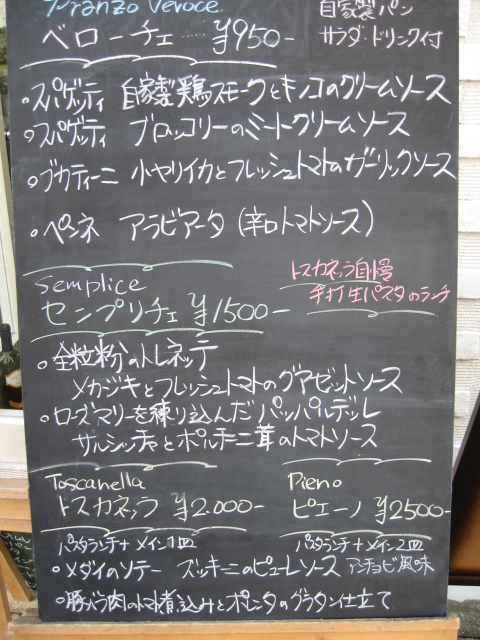 Pranzo Veroce
自家製パン
ベローチェ ¥950-
サラダ・ドリンク付
・スパゲッティ 自家製鶏スモークとキノコのクリームソース
・スパゲッティ ブロッコリーのミートクリームソース
・ブカティーニ 小ヤリイカとフレッシュトマトのガーリックソース
・ペンネ アラビアータ (辛口トマトソース)
Semplice
センプリチェ ¥1500-
トスカネッラ自慢
手打生パスタのランチ
・全粒粉のトレネッテ
メカジキとフレッシュトマトのグアゼットソース
・ローズマリーを練り込んだパッパルデッレ
サルシッチャとポルチーニ茸のトマトソース
Toscanella
トスカネッラ ¥2.000-
パスタランチ+メイン1皿
Pieno
ピエーノ ¥2500-
パスタランチ+メイン2皿
・メダイのソテー ズッキーニのピューレソース アンチョビ風味
・豚バラ肉のトマト煮込みとポレンタのグラタン仕立て